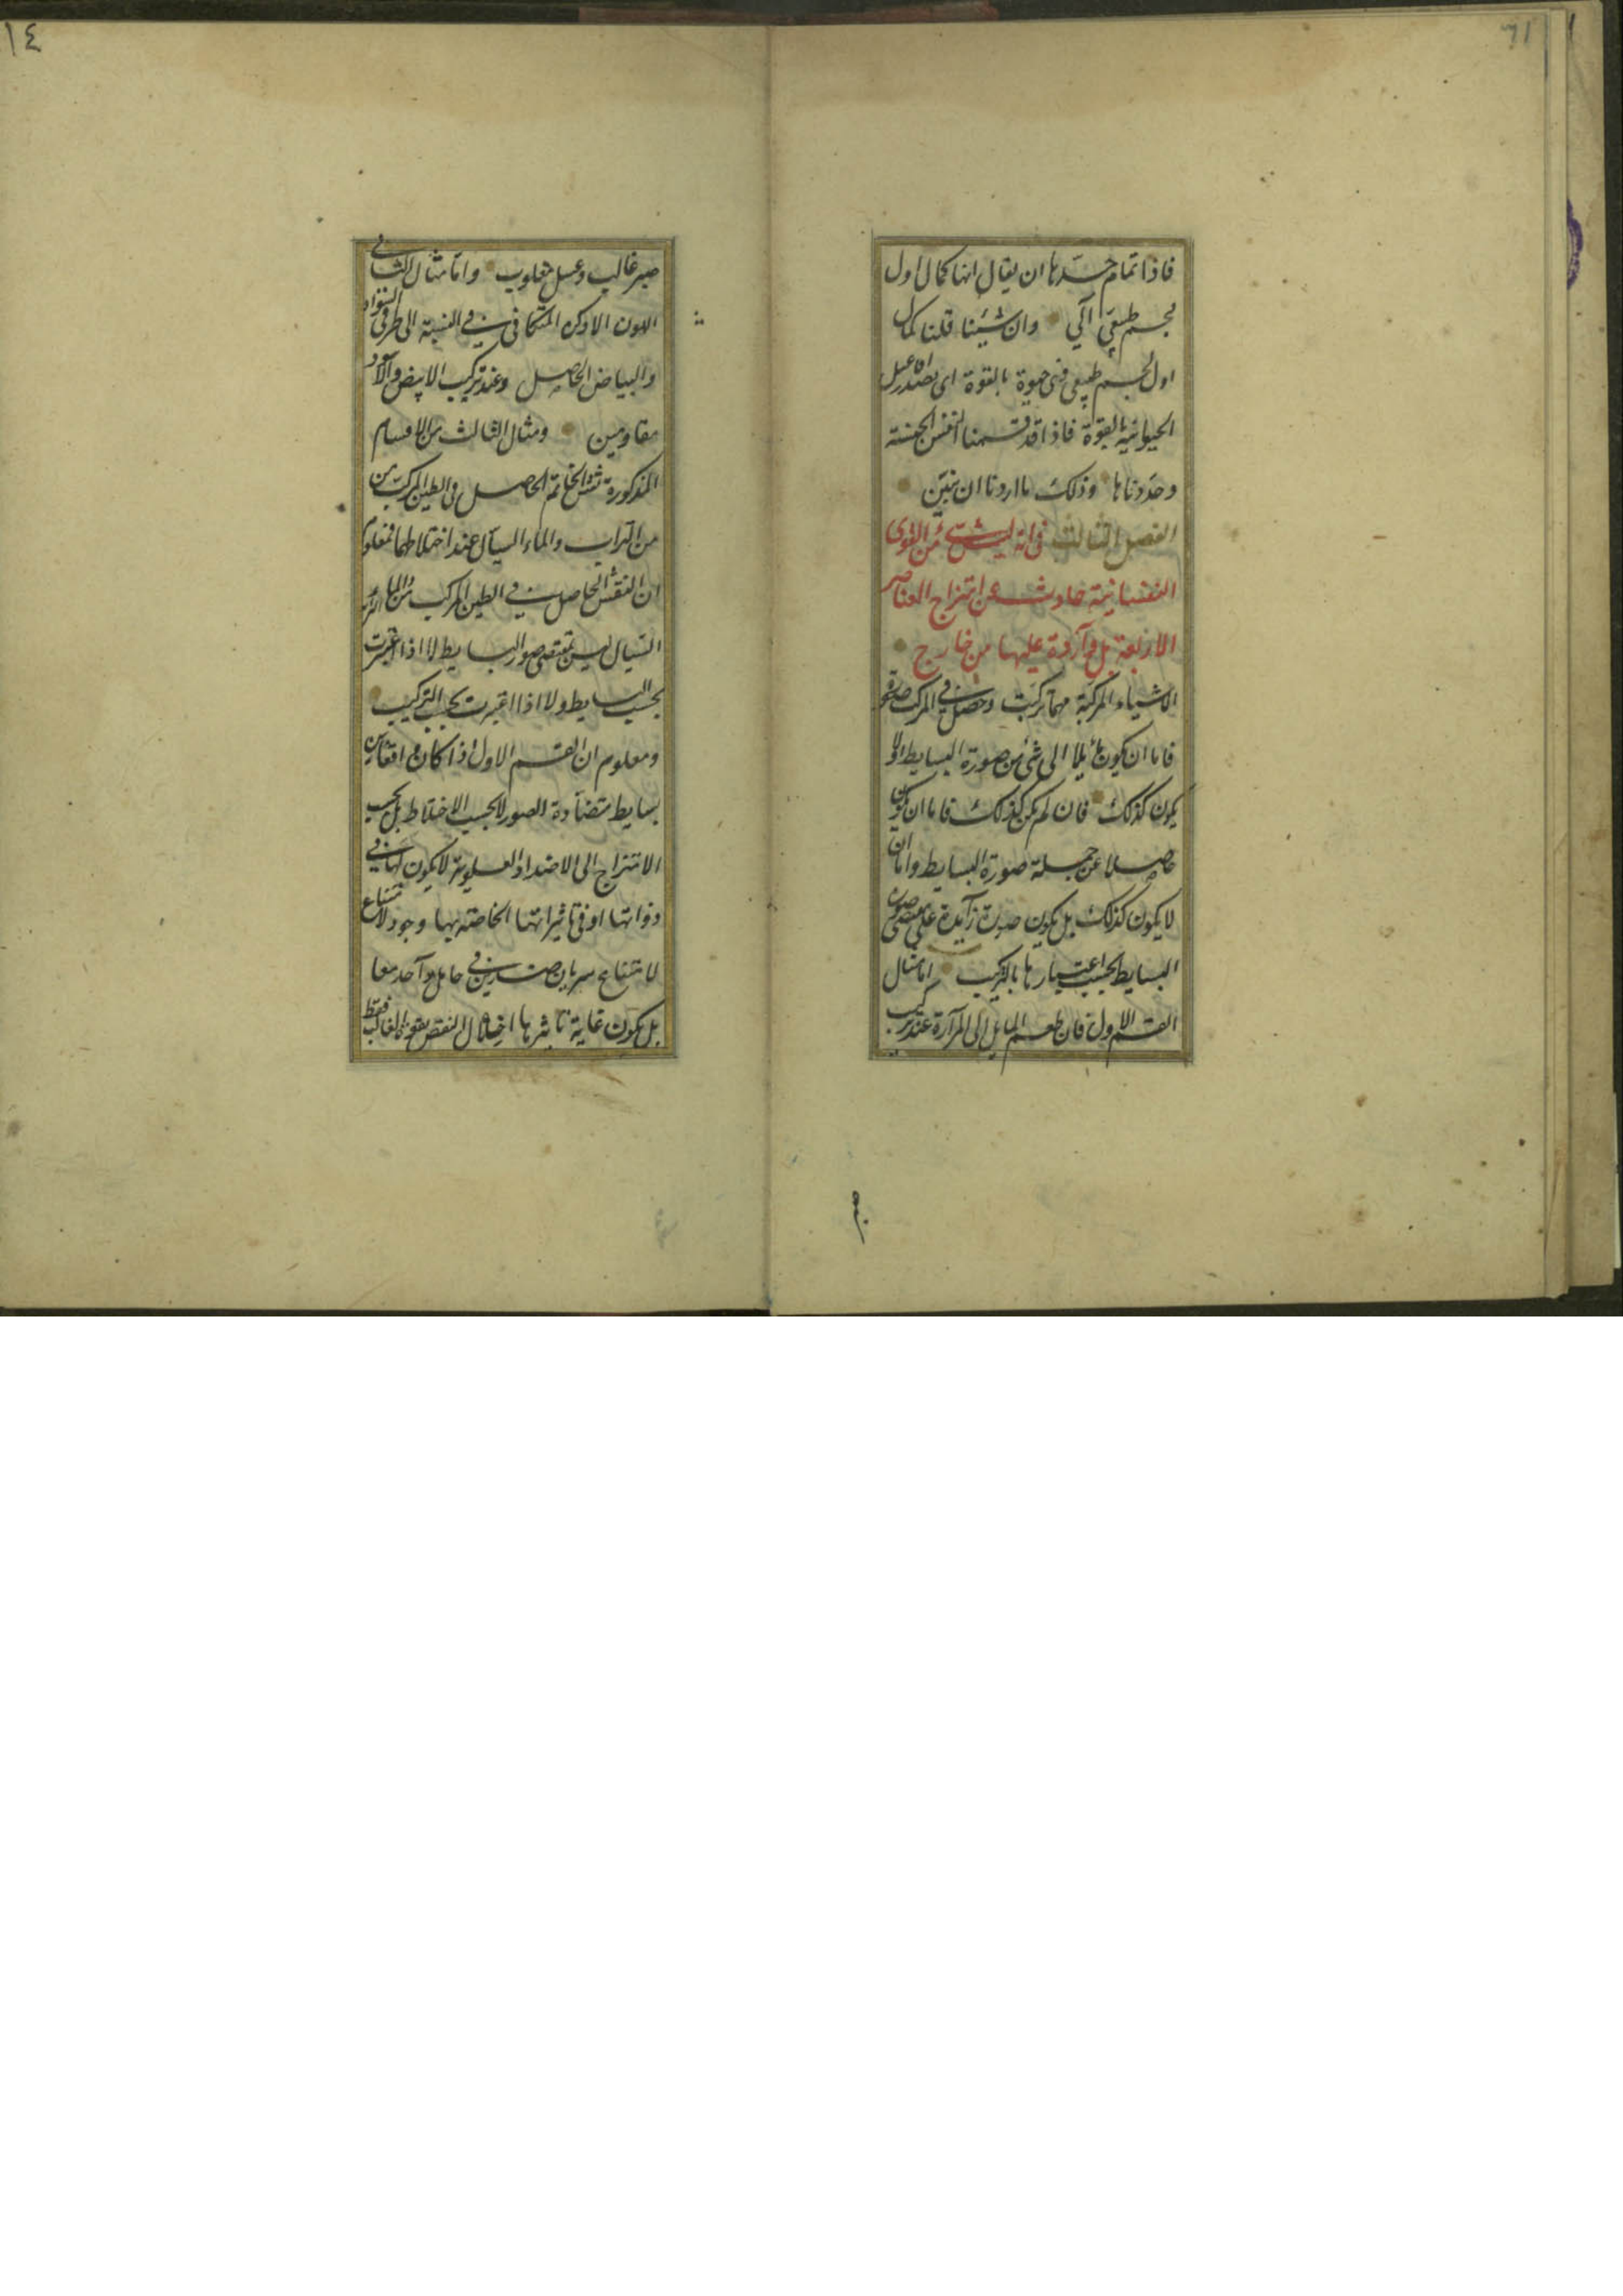 فاذا تمام حدها ان يقال انها كمال اول
لجسم طبيعى آلى وان شيئنا قلنا كمال
اول لجسم طبيعى ذى حيوة بالقوة اى تصدر افاعيل
الحيوانية بالقوة فاذا قد قسمنا النفس الجمسة
وحددناها وذلك ما اردنا ان نبين
الفصل الثالث فى انه ليس شئ من القوى
النفسانية حادث عن امتزاج العناصر
الاربعة بل واردة عليها من خارج
الاشياء المركبة مهما تركبت وحصل فى المركب صورة
فاما ان يكون مايلا الى شئ من صورة البسايط او لا
يكون كذلك فان لم يكن كذلك فاما ان يكون
حاصلا عن جملة صورة البسايط واما ان
لا يكون كذلك بل يكون صورة زايدة على مقتضى صور
البسايط بحسب اعتبارها بالتركيب اما مثال
القسم الاول فان طعم المايل الى المرارة عند تركيب
صبر
١٤
صبر غالب وعسل مغلوب واما مثال الثانى
اللون الادكن المتكافى فى النسبة الى طرفى السواد
والبياض الحاصل وعند تركيب الابيض والاسود
مقاومين ومثال الثالث من الاقسام
المذكورة نقش الخاتم الحاصل فى الطين المركب من
من التراب والماء السيال عند اختلاطهما فمعلوم
ان النقش الحاصل فى الطين المركب من الماء
السيال ليس بمقتضى صور البسايط لا اذا اعتبرت
بحسب البسايط ولا اذا اعتبرت بحسب التركيب
ومعلوم ان القسم الاول اذا كان
بسايط متضادة الصور لا بحسب الاختلاط بل بحسب
الامتزاج الى الاضداد المغلوبة لا يكون لها فى
ذواتها او فى تاثيراتها الخاصة بها وجود
لامتناع سريان ضدين فى حامل واحد معا
بل يكون غاية تاثيرها النقص بقوة الغالب فقط